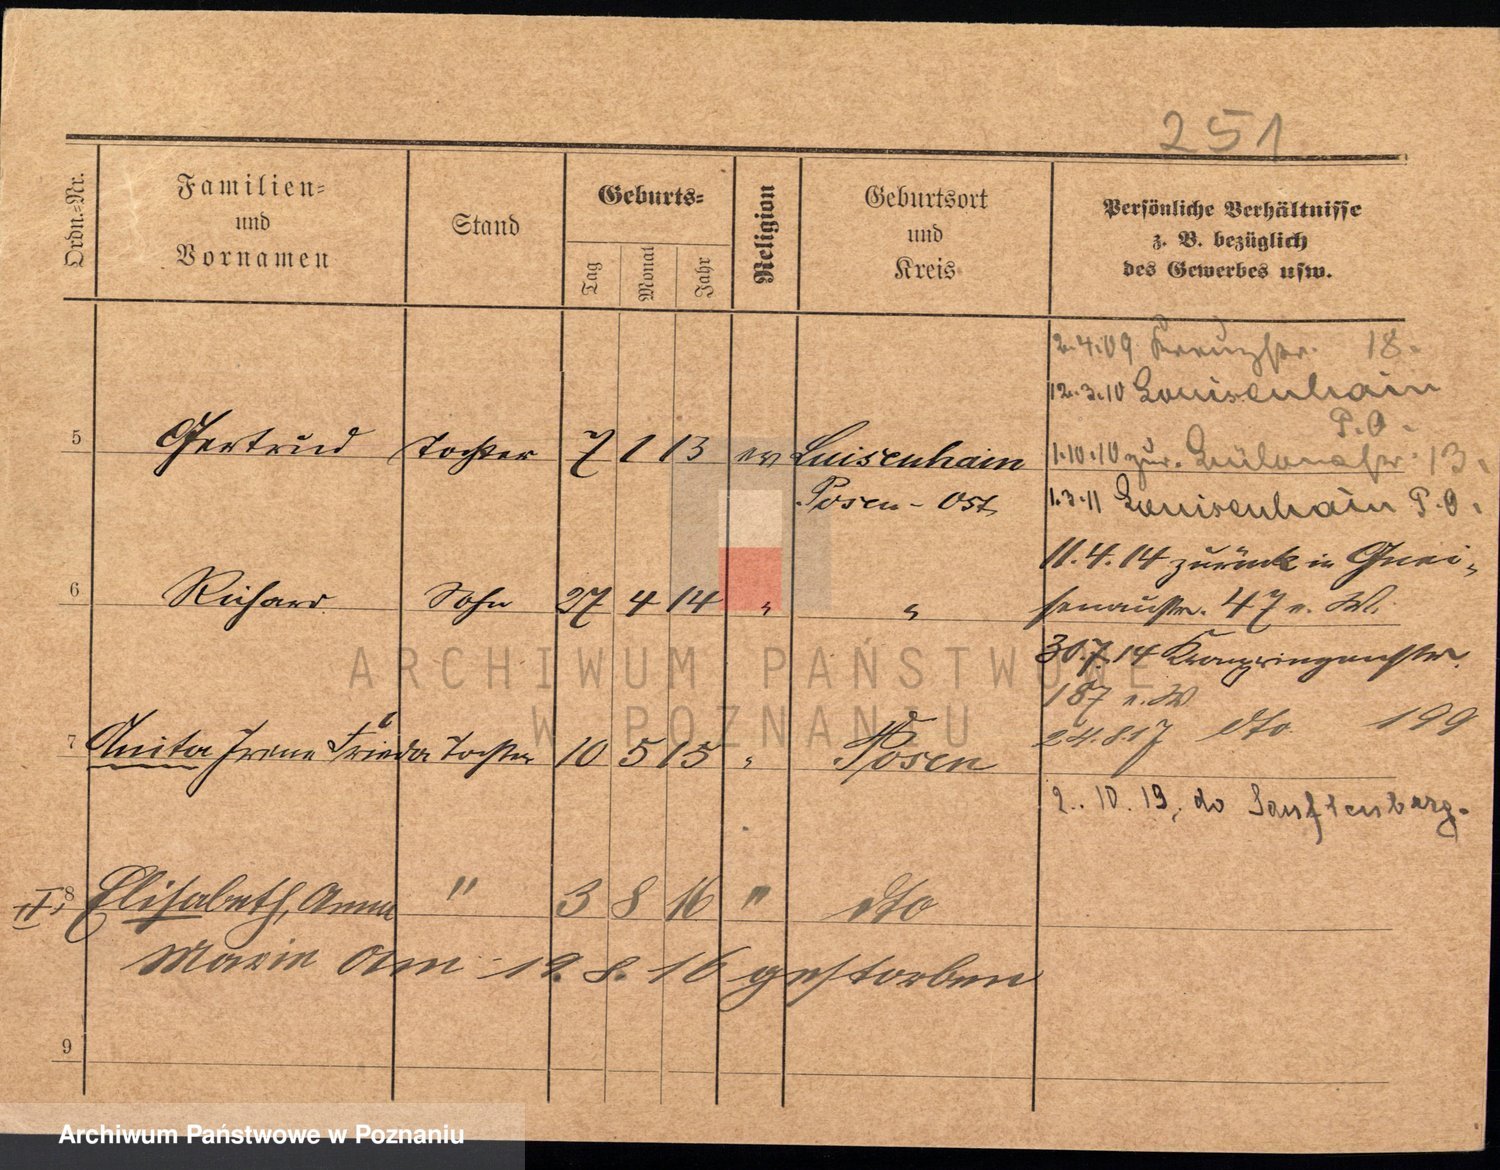 251
Ordn.-Nr.
Familien-
und
Vornamen
Stand
Geburts-
Tag
Monat
Jahr
Religion
Geburtsort
und
Kreis
Persönliche Verhältnisse
z. B. bezüglich
des Gewerbes usw.
2.4.09 Kreuzstr. 18.
12.3.10 Louisenhain
P.O.
5 Gertrud Tochter 7 1 13 ev Luisenhain
Posen-Ost
1.10.10 zur. Bülowstr. 13.
1.3.11 Louisenhain P.O.
11.4.14 zurück in Gnei-
senaustr. 47 v. W.
6 Richard Sohn 27 4 14 " "
30.7.14 Kronprinzenstr.
187 v. W
24.8.17 dto 199
7 Anita Irene Frieda Tochter 10 5 15 " Posen
2.10.19, do Senftenberg.
II, 8 Elisabeth, Anna " 3 8 16 " dto
Marie am 19.8.16 gestorben
9
ARCHIWUM PAŃSTWOWE
W POZNANIU
Archiwum Państwowe w Poznaniu